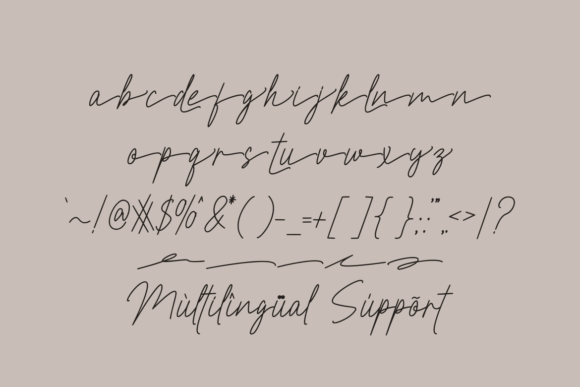 a b c d e f g h i j k l m n
o p q r s t u v w x y z
`~!@#$%^&*()-_=+[]{};:'",.<>|?
Mùltilîngüal Súppõrt